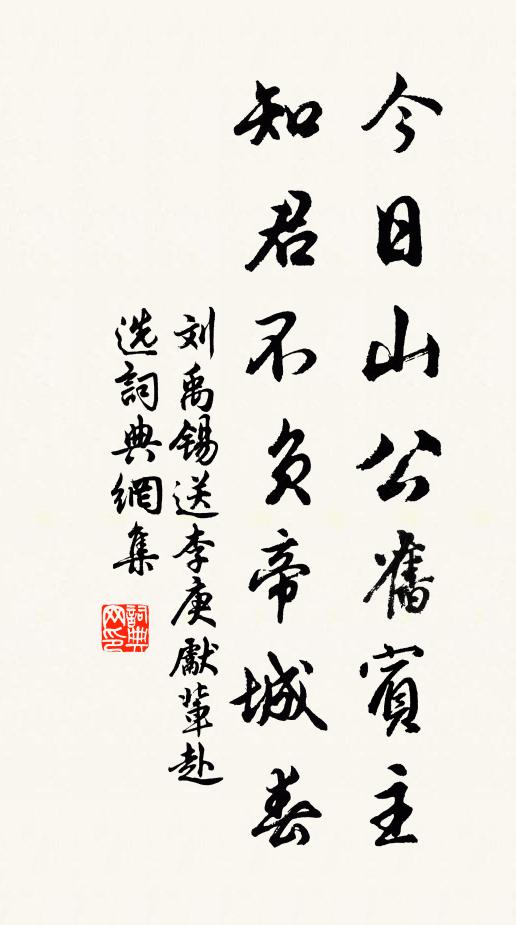 今日山公舊賓主
知君不负帝城春
刘禹锡送李庚獻輩赴
选詞典網集
詞典
网印